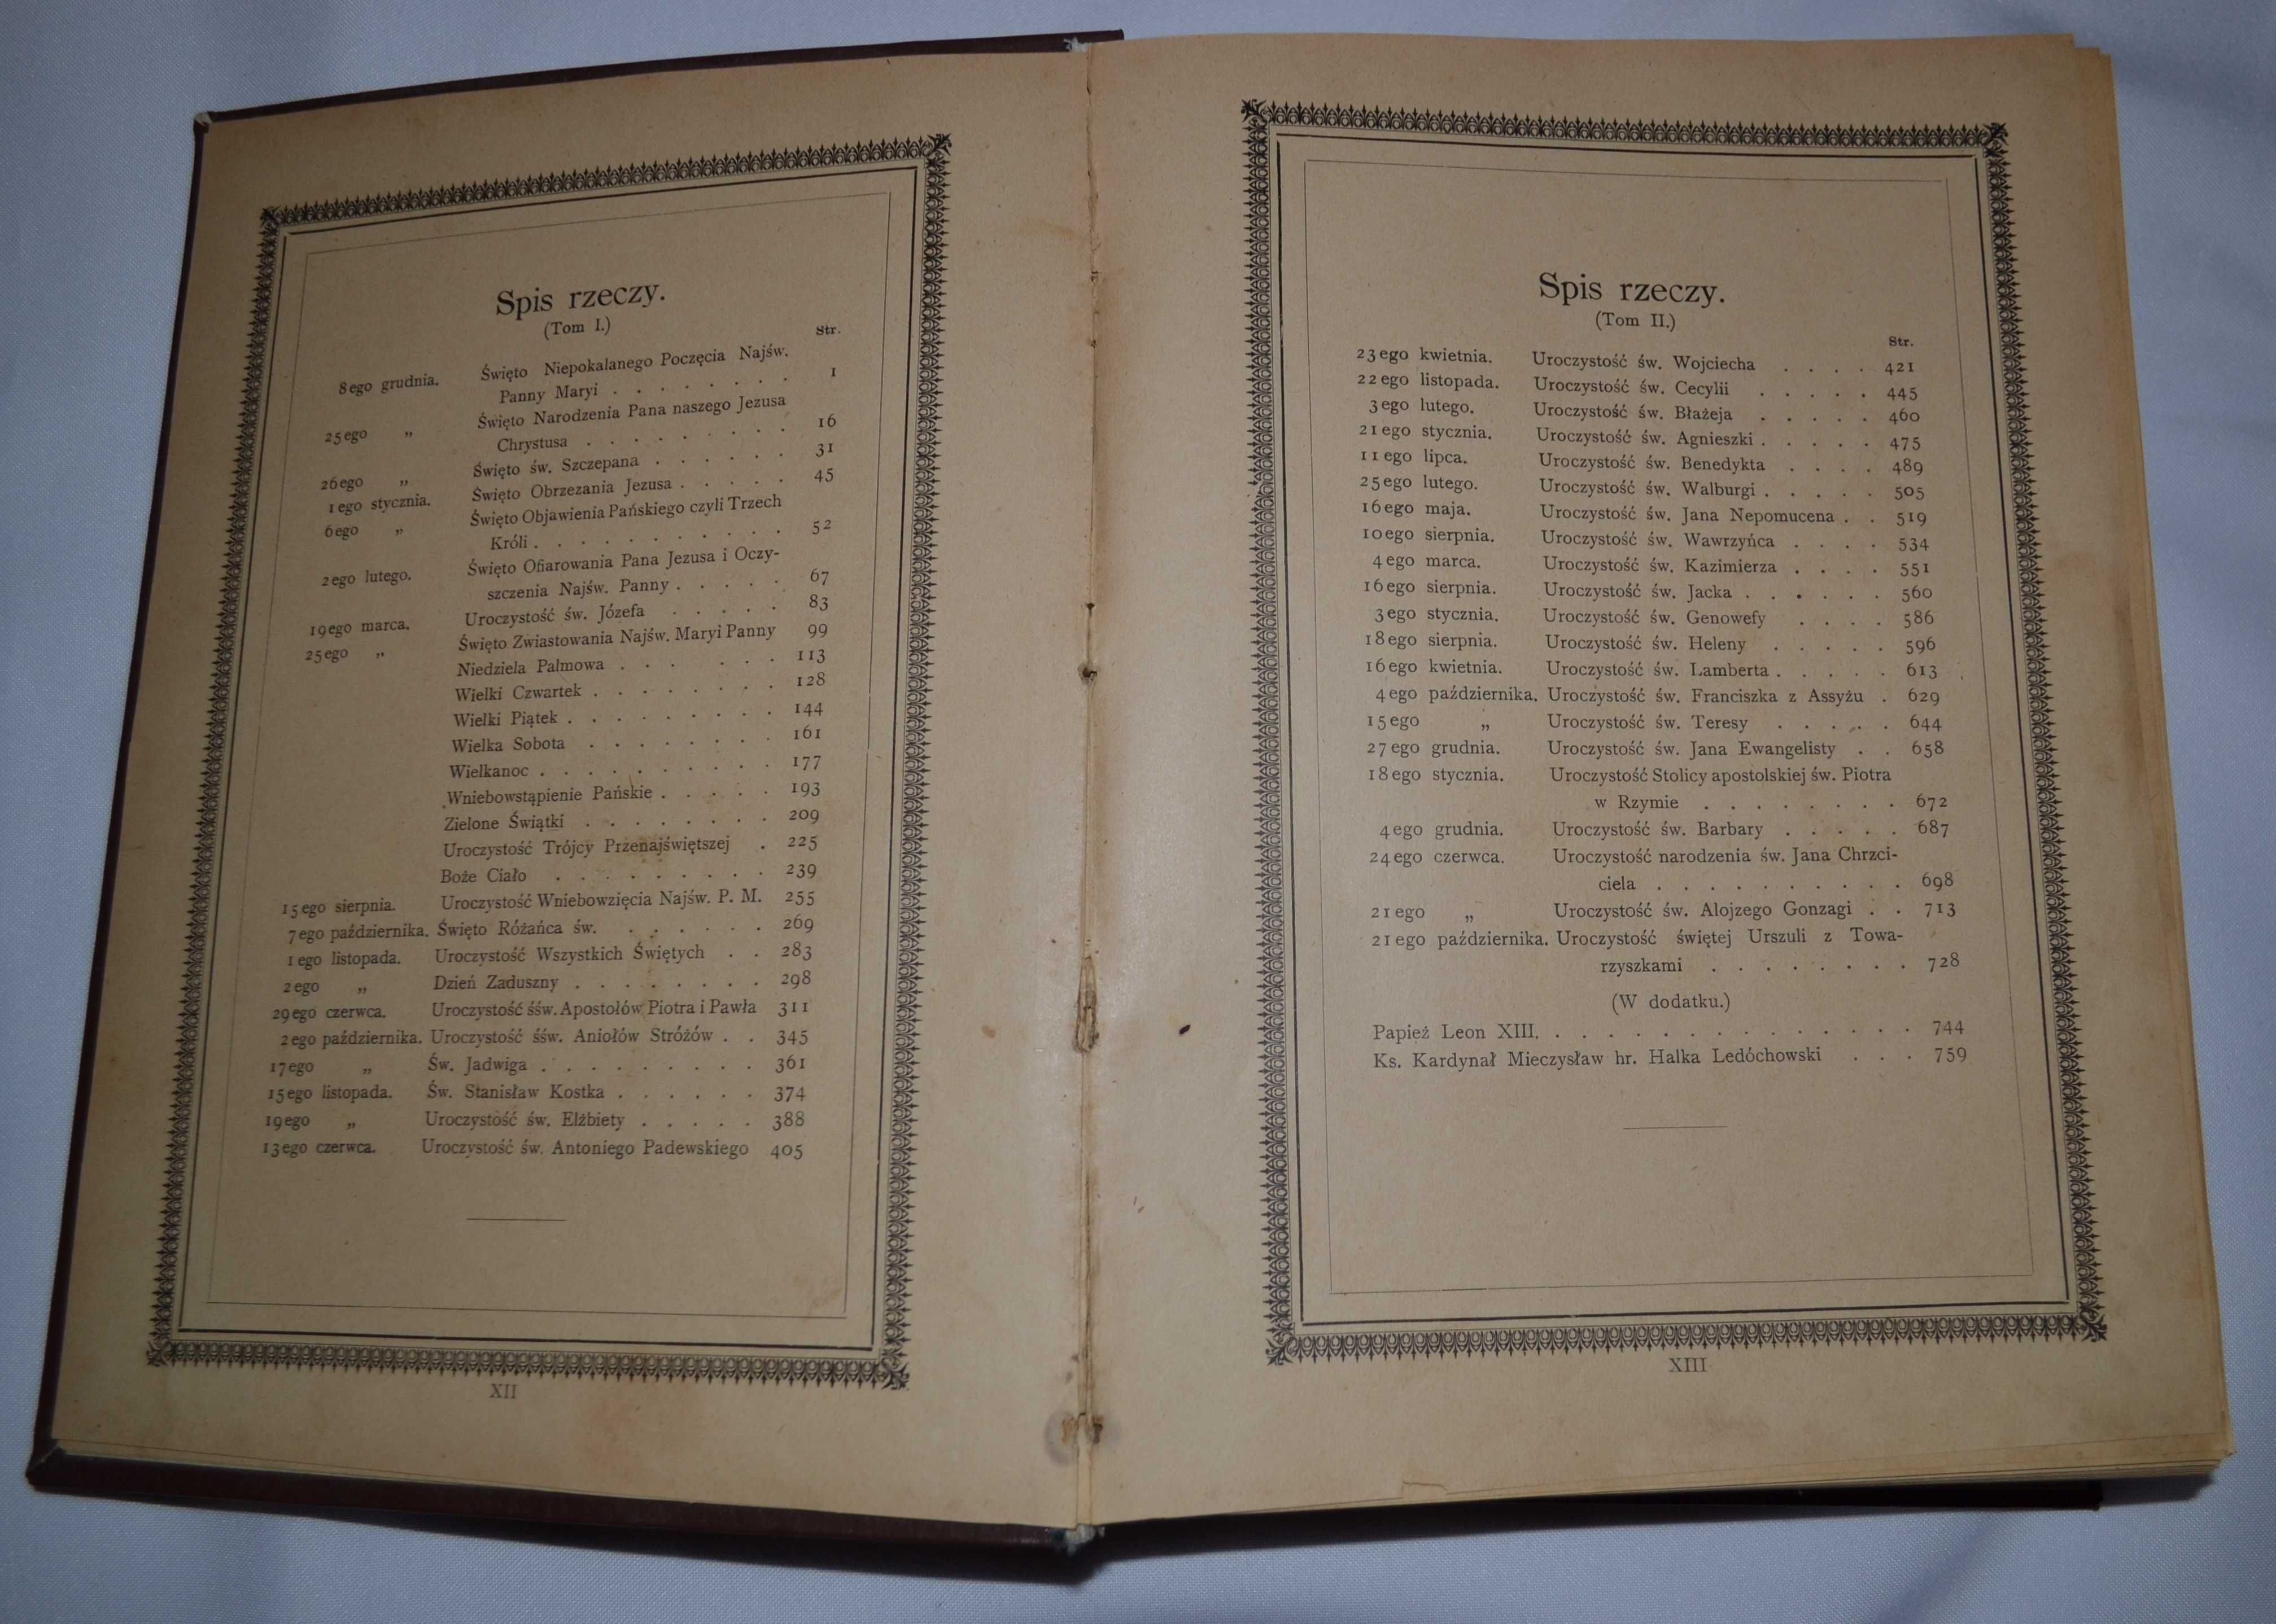 Spis rzeczy.
(Tom I.)
Str.
8ego grudnia. Święto Niepokalanego Poczęcia Najśw.
Panny Maryi . . . . . . . . 1
25ego „ Święto Narodzenia Pana naszego Jezusa
Chrystusa . . . . . . . . . 16
26ego „ Święto św. Szczepana . . . . . . 31
1ego stycznia. Święto Obrzezania Jezusa . . . . . 45
6ego „ Święto Objawienia Pańskiego czyli Trzech
Króli . . . . . . . . . . 52
2ego lutego. Święto Ofiarowania Pana Jezusa i Oczy-
szczenia Najśw. Panny . . . . . 67
19ego marca. Uroczystość św. Józefa . . . . . 83
25ego „ Święto Zwiastowania Najśw. Maryi Panny 99
Niedziela Palmowa . . . . . . 113
Wielki Czwartek . . . . . . . . 128
Wielki Piątek . . . . . . . . . 144
Wielka Sobota . . . . . . . . 161
Wielkanoc . . . . . . . . . . 177
Wniebowstąpienie Pańskie . . . . . 193
Zielone Świątki . . . . . . . . 209
Uroczystość Trójcy Przenajświętszej . 225
Boże Ciało . . . . . . . . . 239
15ego sierpnia. Uroczystość Wniebowzięcia Najśw. P. M. 255
7ego października. Święto Różańca św. . . . . . . 269
1ego listopada. Uroczystość Wszystkich Świętych . . 283
2ego „ Dzień Zaduszny . . . . . . . . 298
29ego czerwca. Uroczystość śśw. Apostołów Piotra i Pawła 311
2ego października. Uroczystość śśw. Aniołów Stróżów . . 345
17ego „ Św. Jadwiga . . . . . . . . . 361
15ego listopada. Św. Stanisław Kostka . . . . . . 374
19ego „ Uroczystość św. Elżbiety . . . . . 388
13ego czerwca. Uroczystość św. Antoniego Padewskiego 405
XII
Spis rzeczy.
(Tom II.)
Str.
23ego kwietnia. Uroczystość św. Wojciecha . . . . 421
22ego listopada. Uroczystość św. Cecylii . . . . . 445
3ego lutego. Uroczystość św. Błażeja . . . . . 460
21ego stycznia. Uroczystość św. Agnieszki . . . . . 475
11ego lipca. Uroczystość św. Benedykta . . . . 489
25ego lutego. Uroczystość św. Walburgi . . . . . 505
16ego maja. Uroczystość św. Jana Nepomucena . . 519
10ego sierpnia. Uroczystość św. Wawrzyńca . . . . 534
4ego marca. Uroczystość św. Kazimierza . . . . 551
16ego sierpnia. Uroczystość św. Jacka . . . . . . 560
3ego stycznia. Uroczystość św. Genowefy . . . . 586
18ego sierpnia. Uroczystość św. Heleny . . . . . 596
16ego kwietnia. Uroczystość św. Lamberta . . . . . 613
4ego października. Uroczystość św. Franciszka z Assyżu . 629
15ego „ Uroczystość św. Teresy . . . . . 644
27ego grudnia. Uroczystość św. Jana Ewangelisty . . 658
18ego stycznia. Uroczystość Stolicy apostolskiej św. Piotra
w Rzymie . . . . . . . . 672
4ego grudnia. Uroczystość św. Barbary . . . . . 687
24ego czerwca. Uroczystość narodzenia św. Jana Chrzci-
ciela . . . . . . . . . . 698
21ego „ Uroczystość św. Alojzego Gonzagi . . 713
21ego października. Uroczystość świętej Urszuli z Towa-
rzyszkami . . . . . . . . 728
(W dodatku.)
Papież Leon XIII. . . . . . . . . . . . . . . 744
Ks. Kardynał Mieczysław hr. Halka Ledóchowski . . . 759
XIII